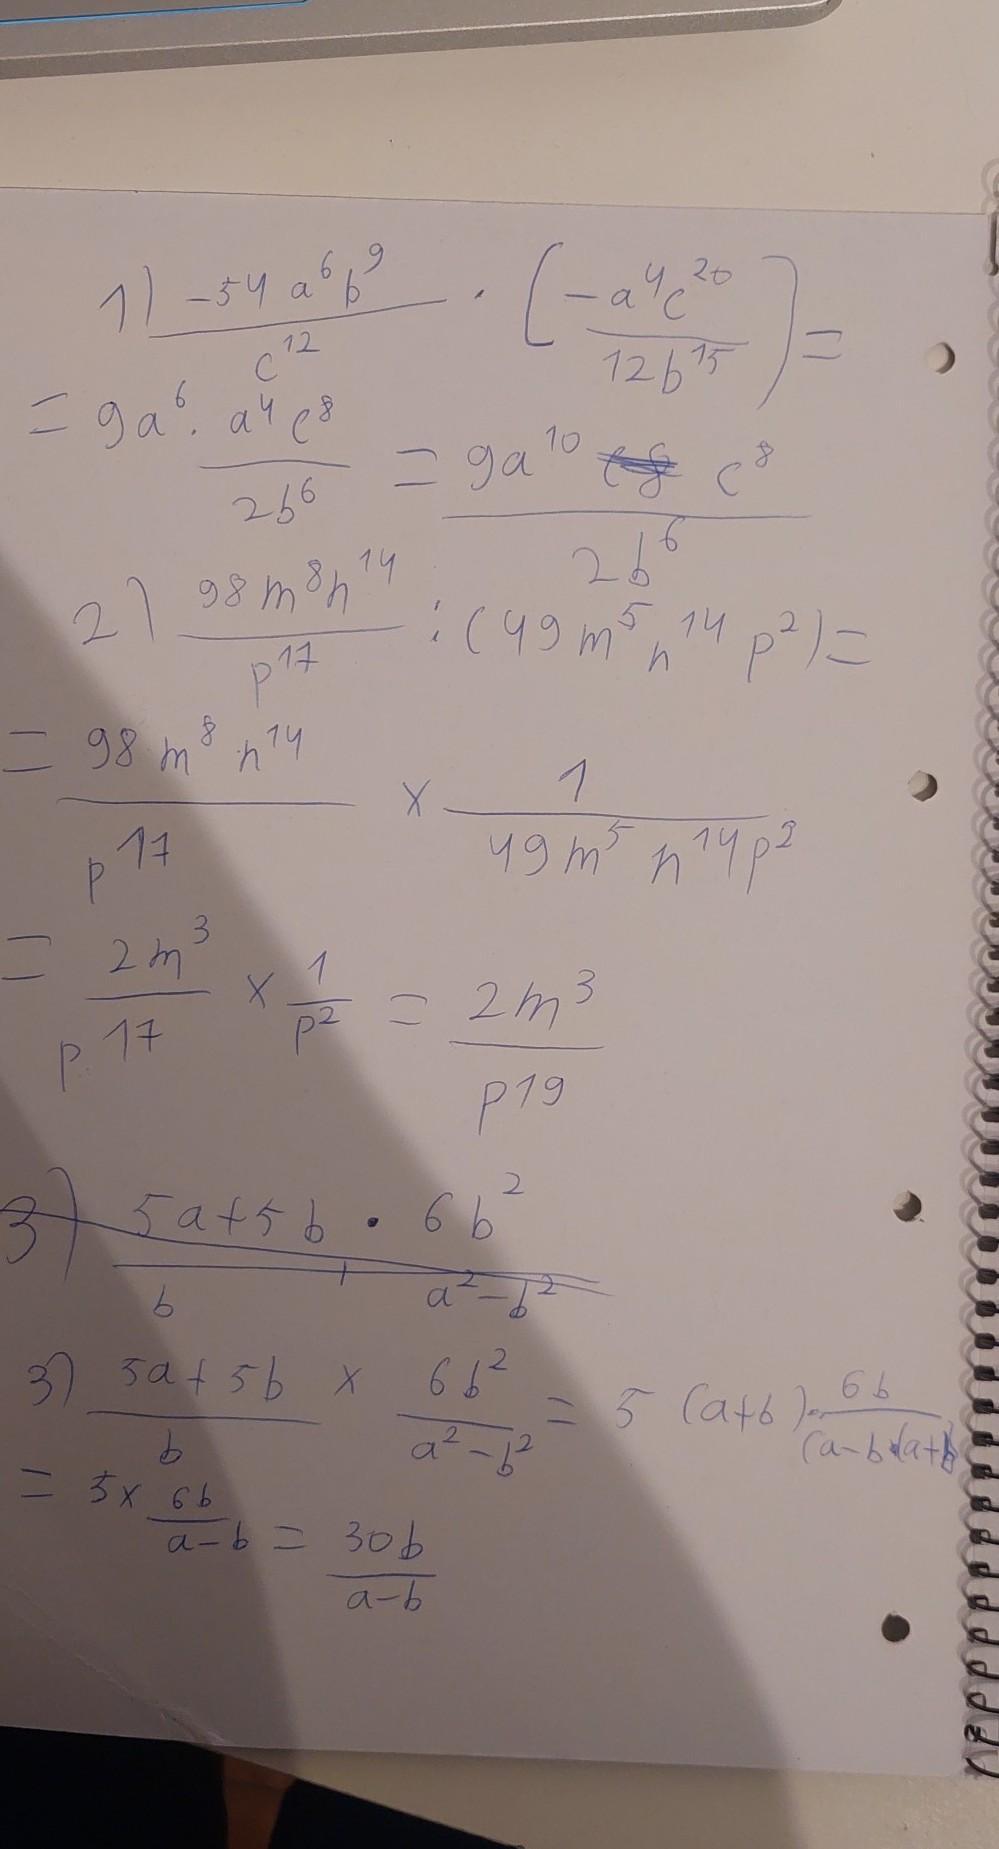 1) -54 a^6 b^9 / c^12 · (-a^4 c^20 / 12b^15) =
= 9a^6 · a^4 c^8 / 2b^6 = 9a^10 c^8 / 2b^6
2) 98m^8n^14 / p^17 : (49m^5 n^14 p^2) =
= 98m^8 n^14 / p^17 x 1 / 49m^5 n^14p^2
= 2m^3 / p^17 x 1/p^2 = 2m^3 / p19
3) 5a+5b · 6b^2 / b a^2-b^2
3) 5a+5b / b x 6b^2 / a^2-b^2 = 5 (a+b) · 6b / (a-b)·(a+b)
= 5x 6b / a-b = 30b / a-b